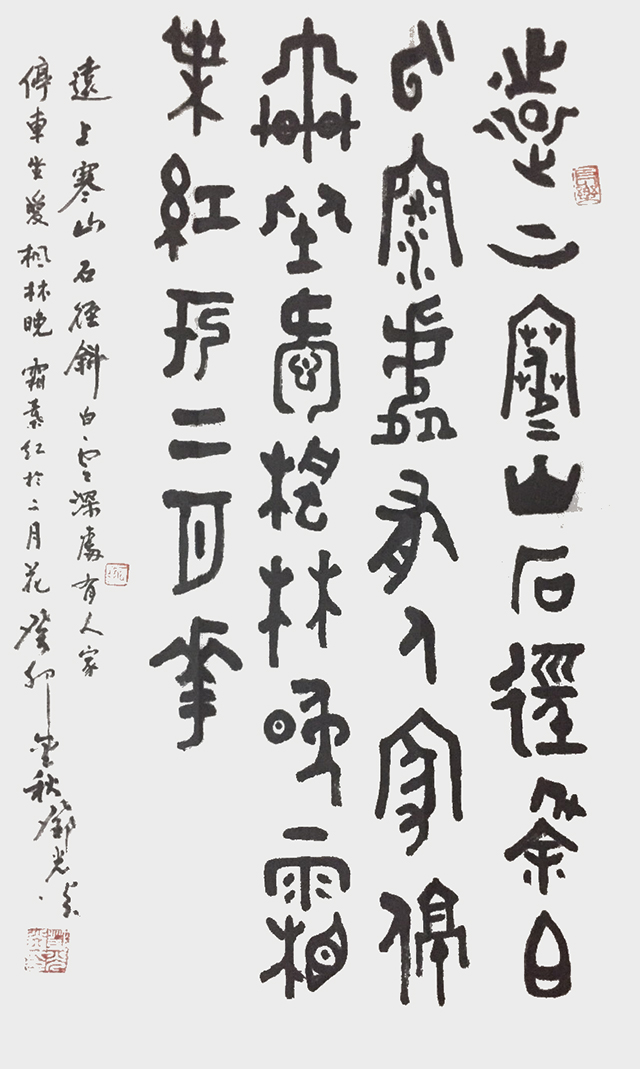 遠上寒山石徑斜白
云深處有人家停
車坐愛楓林晚霜
葉紅於二月花
遠上寒山石徑斜白云深處有人家
停車坐愛楓林晚霜葉紅於二月花癸卯金秋鄧光